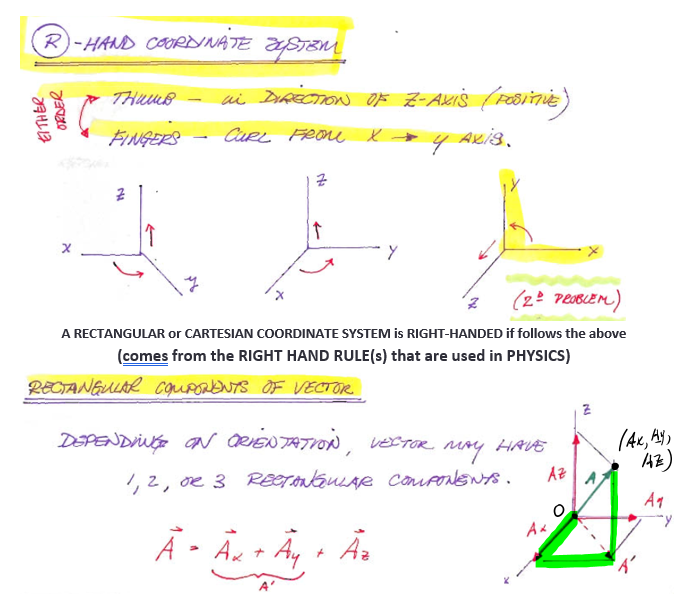 (R)-HAND COORDINATE SYSTEM
EITHER ORDER
THUMB - in DIRECTION OF Z-AXIS (POSITIVE)
FINGERS - CURL FROM X → y AXIS.
Z
X
y
Z
Y
X
Y
X
Z
(2D PROBLEM)
A RECTANGULAR or CARTESIAN COORDINATE SYSTEM is RIGHT-HANDED if follows the above
(comes from the RIGHT HAND RULE(s) that are used in PHYSICS)
RECTANGULAR COMPONENTS OF VECTOR
DEPENDING ON ORIENTATION, VECTOR MAY HAVE
1, 2, OR 3 RECTANGULAR COMPONENTS.
A⃗ = A⃗x + A⃗y + A⃗z
A'
Z
(Ax, Ay,
Az)
Az
A
Ay
O
Y
Ax
A'
X